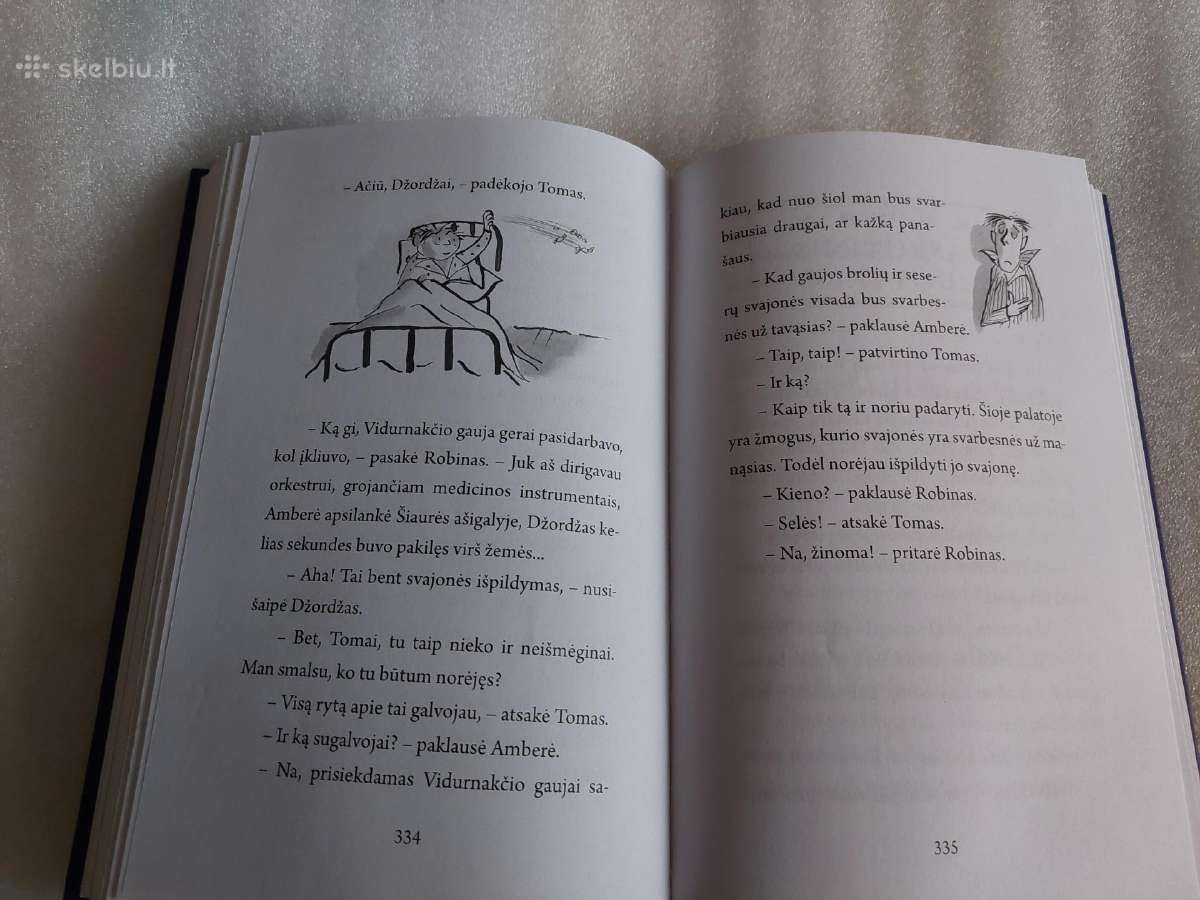 skelbiu.lt
– Ačiū, Džordžai, – padėkojo Tomas.
– Ką gi, Vidurnakčio gauja gerai pasidarbavo,
kol įkliuvo, – pasakė Robinas. – Juk aš dirigavau
orkestrui, grojančiam medicinos instrumentais,
Amberė apsilankė Šiaurės ašigalyje, Džordžas ke-
lias sekundes buvo pakilęs virš žemės...
– Aha! Tai bent svajonės išpildymas, – nusi-
šaipė Džordžas.
– Bet, Tomai, tu taip nieko ir neišmėginai.
Man smalsu, ko tu būtum norėjęs?
– Visą rytą apie tai galvojau, – atsakė Tomas.
– Ir ką sugalvojai? – paklausė Amberė.
– Na, prisiekdamas Vidurnakčio gaujai sa-
334
kiau, kad nuo šiol man bus svar-
biausia draugai, ar kažką pana-
šaus.
– Kad gaujos brolių ir sese-
rų svajonės visada bus svarbes-
nės už tavąsias? – paklausė Amberė.
– Taip, taip! – patvirtino Tomas.
– Ir ką?
– Kaip tik tą ir noriu padaryti. Šioje palatoje
yra žmogus, kurio svajonės yra svarbesnės už ma-
nąsias. Todėl norėjau išpildyti jo svajonę.
– Kieno? – paklausė Robinas.
– Selės! – atsakė Tomas.
– Na, žinoma! – pritarė Robinas.
335